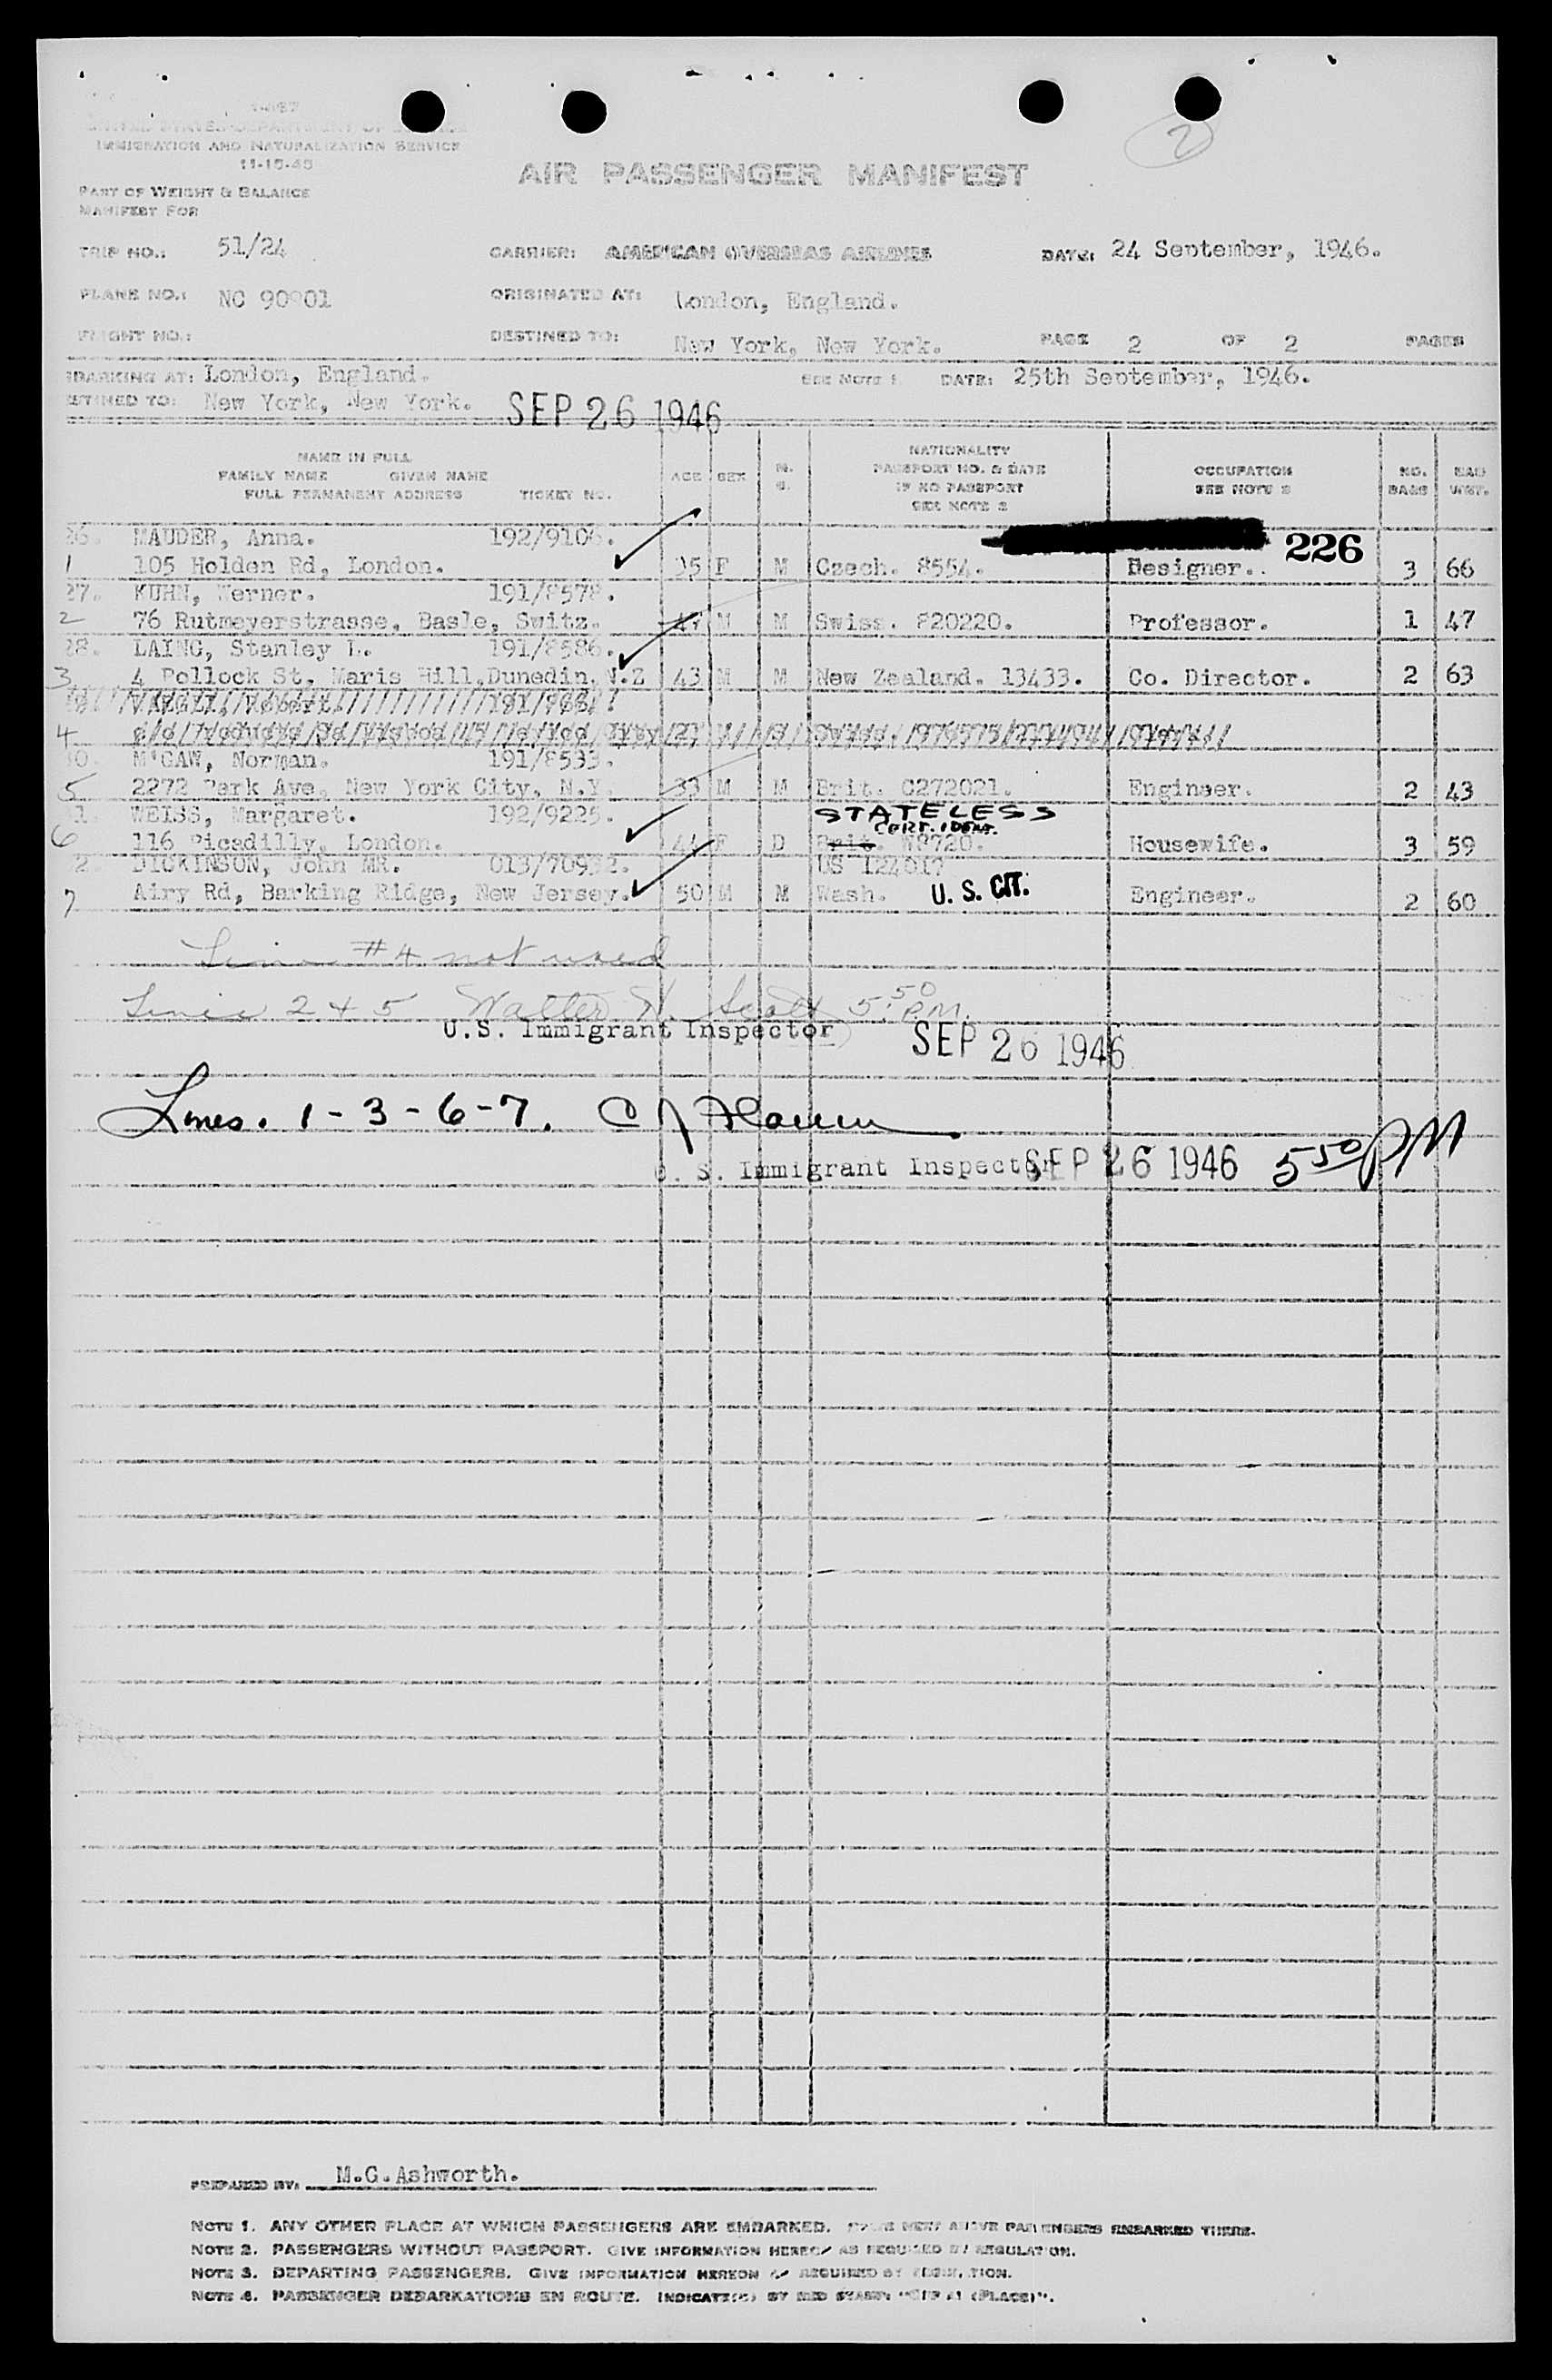 2
UNITED STATES DEPARTMENT OF
IMMIGRATION AND NATURALIZATION SERVICE
11-15-45
AIR PASSENGER MANIFEST
PART OF WEIGHT & BALANCE
MANIFEST FOR
TRIP NO.: 51/24 CARRIER: AMERICAN OVERSEAS AIRLINES DATE: 24 September, 1946.
PLANE NO.: NC 90901 ORIGINATED AT: London, England.
FLIGHT NO.: DESTINED TO: New York, New York. PAGE 2 OF 2 PAGES
EMBARKING AT: London, England. SEE NOTE 1 DATE: 25th September, 1946.
DESTINED TO: New York, New York. SEP 26 1946
NAME IN FULL
FAMILY NAME GIVEN NAME
FULL PERMANENT ADDRESS TICKET NO. AGE SEX M. S. NATIONALITY PASSPORT NO. & DATE IF NO PASSPORT SEE NOTE 2 OCCUPATION SEE NOTE 3 NO. BAGS BAG WGT.
26. MAUDER, Anna. 192/9106. 226
1 105 Holden Rd, London. 35 F M Czech. 8554. Designer. 3 66
27. KUHN, Werner. 191/8578.
2 76 Rutmeyerstrasse, Basle, Switz. 47 M M Swiss. 820220. Professor. 1 47
28. LAING, Stanley L. 191/8586.
3 4 Pollock St, Maris Hill, Dunedin, N.Z 43 M M New Zealand. 13433. Co. Director. 2 63
4
30. M'GAW, Norman. 191/8533.
5 2272 Park Ave, New York City, N.Y. 33 M M Brit. C272021. Engineer. 2 43
31. WEISS, Margaret. 192/9225. STATELESS
CERT. IDENT.
6 116 Picadilly, London. 44 F D Brit. W8720. Housewife. 3 59
32. DICKINSON, John MR. 013/70932. US 124017
7 Airy Rd, Barking Ridge, New Jersey. 50 M M Wash. U. S. CIT. Engineer. 2 60
Line #4 not used
Lines 2 & 5 Walter H. Scott 5:50 P.M.
U.S. Immigrant Inspector SEP 26 1946
Lines. 1-3-6-7.
U. S. Immigrant Inspector SEP 26 1946 5 50 PM
PREPARED BY: M.G.Ashworth.
NOTE 1. ANY OTHER PLACE AT WHICH PASSENGERS ARE EMBARKED. PASSENGERS EMBARKED THERE.
NOTE 2. PASSENGERS WITHOUT PASSPORT. GIVE INFORMATION HEREON AS REQUIRED BY REGULATION.
NOTE 3. DEPARTING PASSENGERS. GIVE INFORMATION HEREON AS REQUIRED BY REGULATION.
NOTE 4. PASSENGER DEBARKATIONS EN ROUTE. INDICATE BY RED STAMP "OFF AT (PLACE)".